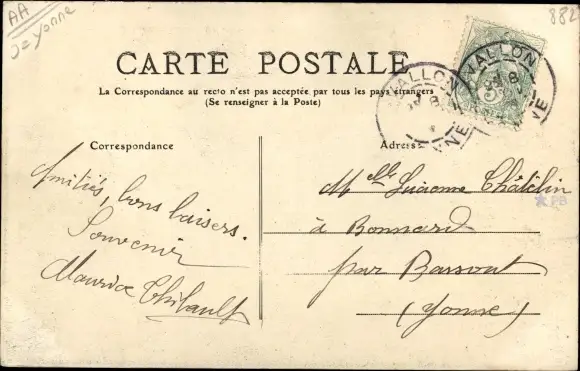 AA
Yonne
882
CARTE POSTALE
La Correspondance au recto n'est pas acceptée par tous les pays étrangers
(Se renseigner à la Poste)
AVALLON
YONNE
AVALLON
YONNE
Correspondance
Amitiés, bons baisers.
Souvenir
Maurice Thibault
Adresse
Melle Lucienne Châtelin
à Bonnard
par Bassout
(Yonne)
PB